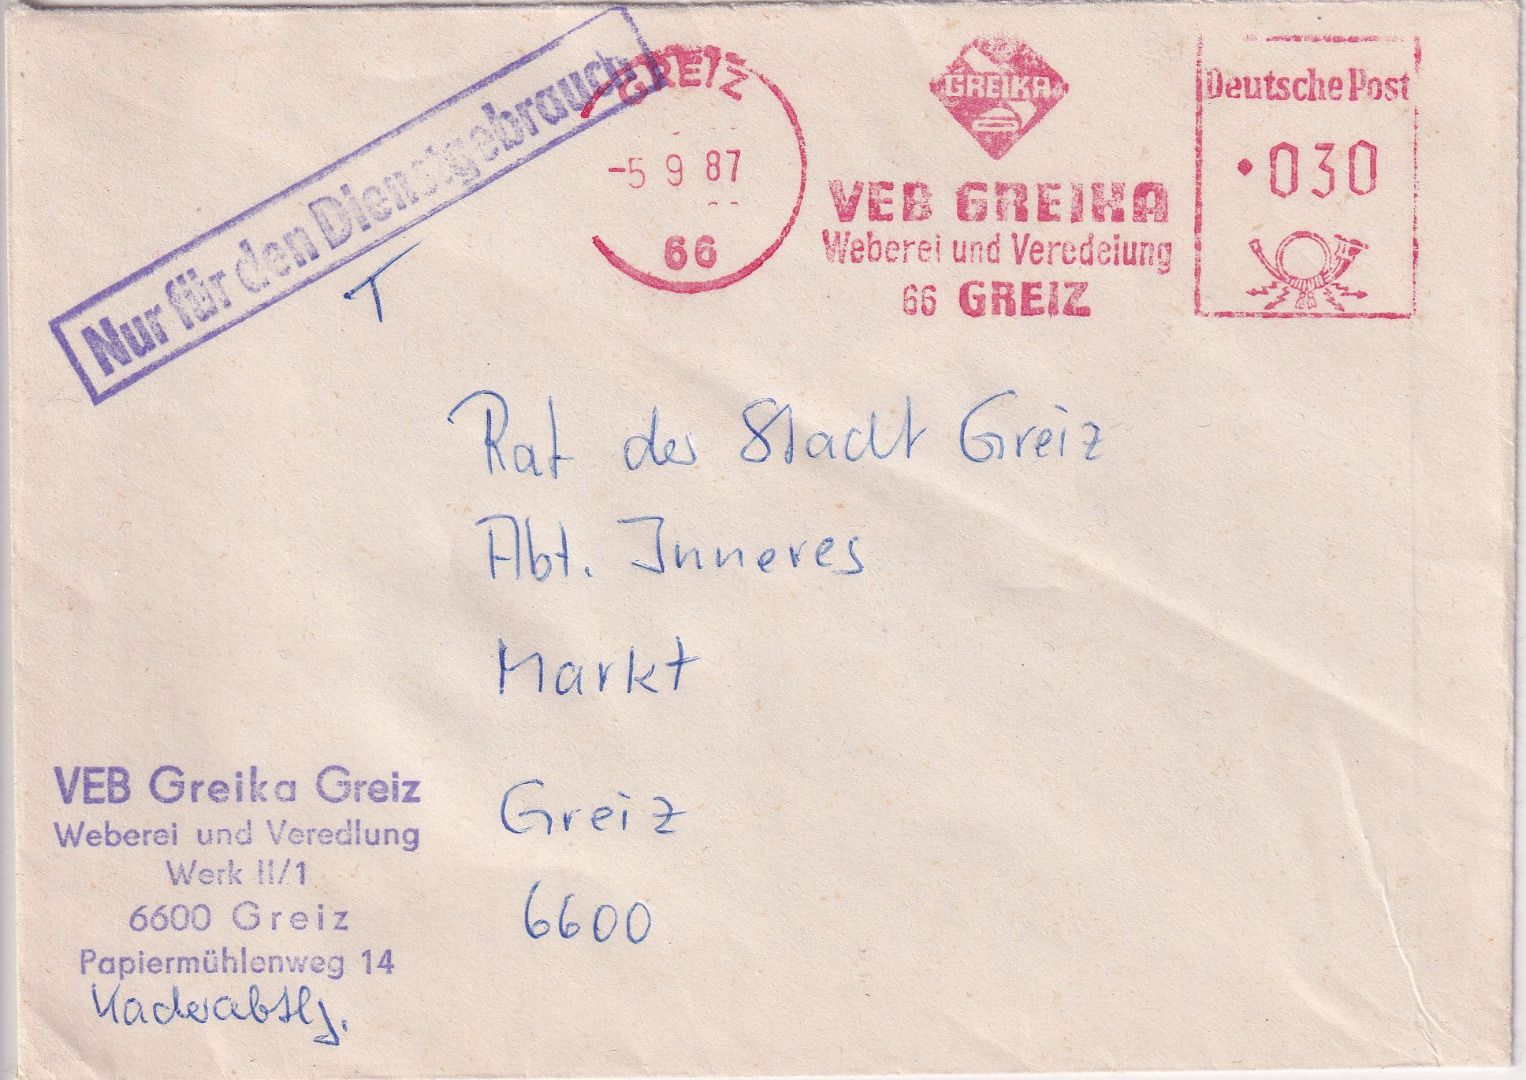 Nur für den Dienstgebrauch
GREIZ
-5 9 87
66
GREIKA
VEB GREIKA
Weberei und Veredelung
66 GREIZ
Deutsche Post
030
T
Rat der Stadt Greiz
Abt. Inneres
Markt
Greiz
6600
VEB Greika Greiz
Weberei und Veredlung
Werk II/1
6600 Greiz
Papiermühlenweg 14
Kaderabtlg.